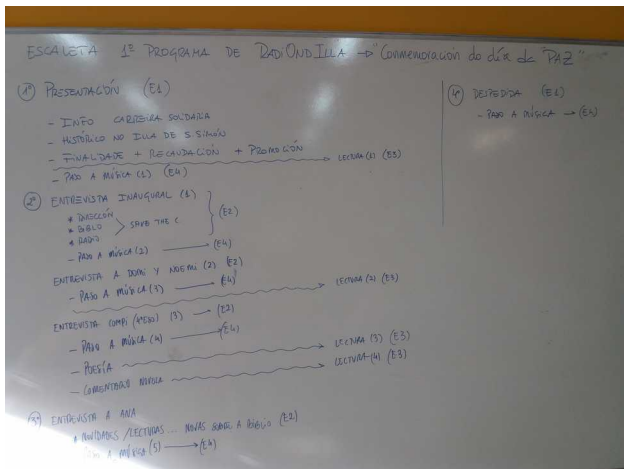 ESCALETA 1º PROGRAMA DE RADIONDILLA → "Conmemoración do día da PAZ"
1º PRESENTACIÓN (E1)
- INFO CARREIRA SOLIDARIA
- HISTÓRICO NO ILLA DE S. SIMÓN
- FINALIDADE + RECAUDACIÓN + PROMOCIÓN
LECTURA (1) (E3)
- PASO A MÚSICA (1) (E4)
2º ENTREVISTA INAUGURAL (1)
* DIRECCIÓN
* BIBLIO SAVE THE C. (E2)
* RADIO
- PASO A MÚSICA (2) → (E4)
ENTREVISTA A DOMI Y NOEMI (2) (E2)
- PASO A MÚSICA (3) → (E4)
LECTURA (2) (E3)
ENTREVISTA COMPI (4ºESO) (3) → (E2)
- PASO A MÚSICA (4) → (E4)
- POESÍA → LECTURA (3) (E3)
- COMENTARIO NOVELA → LECTURA (4) (E3)
3º ENTREVISTA A ANA
NOVIDADES / LECTURAS... NOVAS SOBRE A BIBLIO (E2)
A MÚSICA (5) → (E4)
4º DESPEDIDA (E1)
- PASO A MÚSICA → (E4)